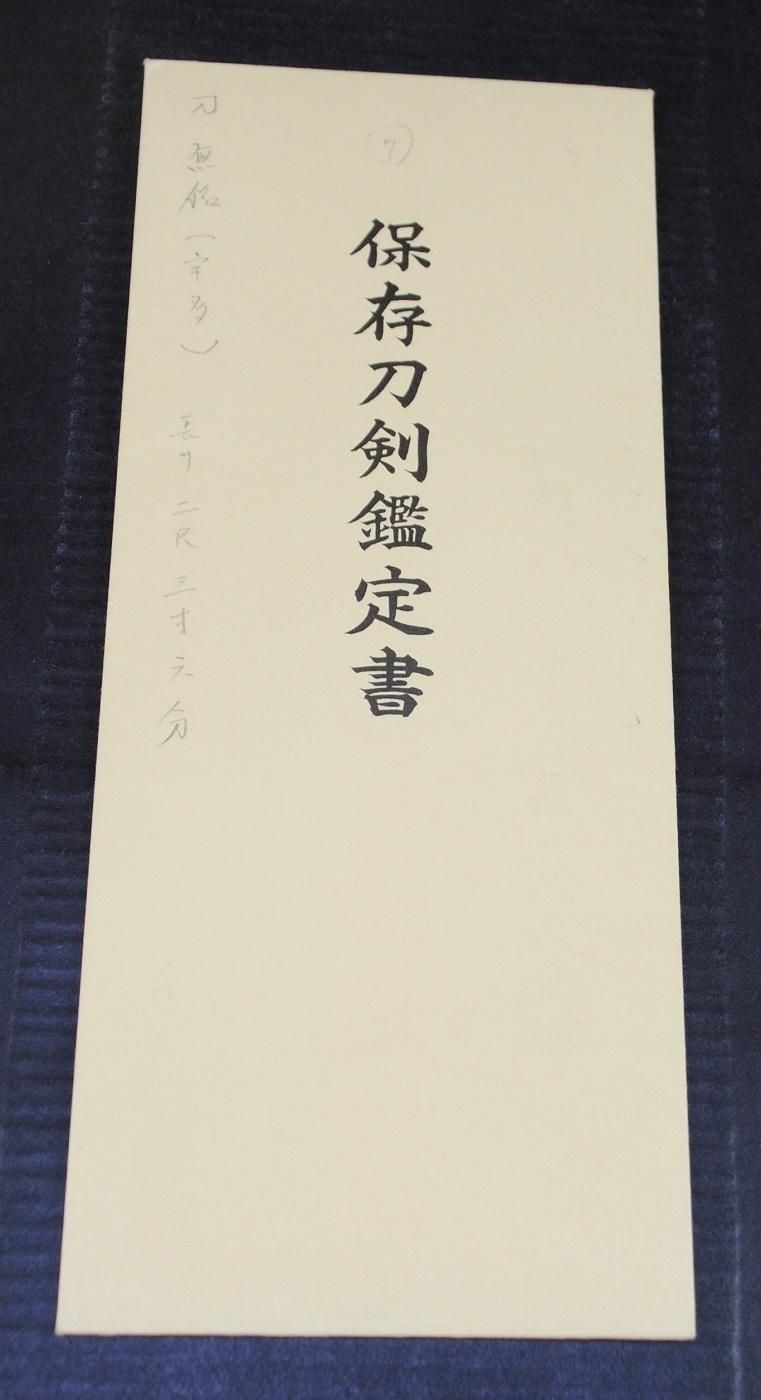 (7)
保存刀剣鑑定書
刀 無銘(宇多) 長サ 二尺 三寸 六分